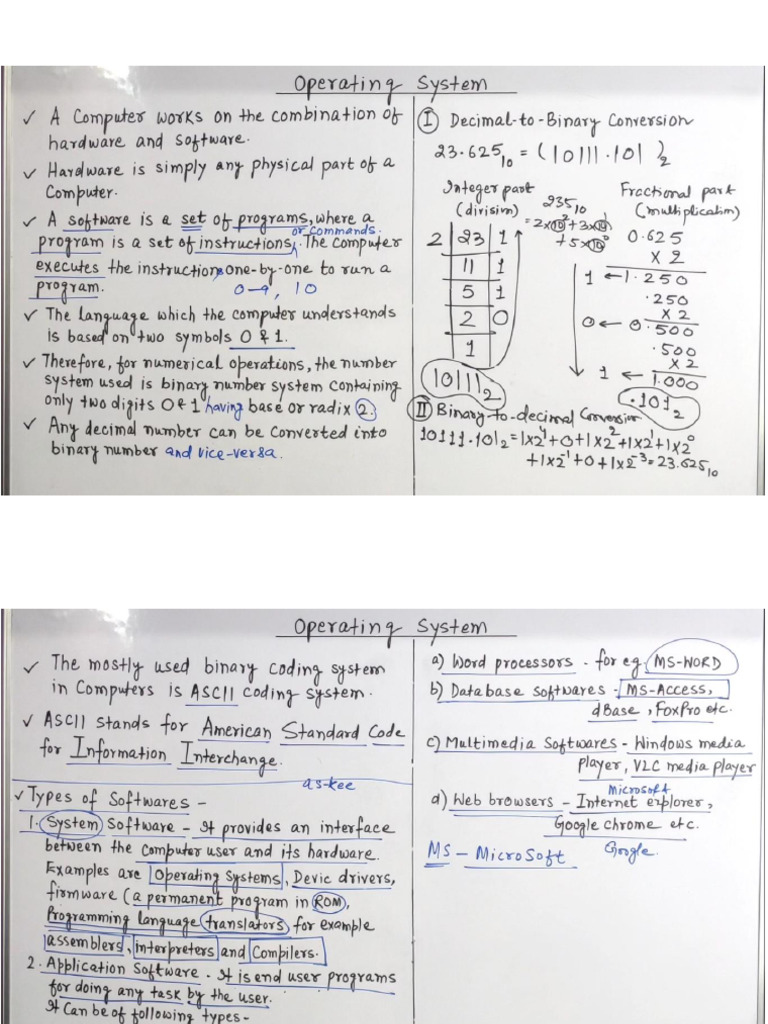 Operating System
✓ A Computer works on the combination of
hardware and software.
✓ Hardware is simply any physical part of a
Computer.
✓ A software is a set of programs, where a
or commands.
program is a set of instructions. The Computer
executes the instructions one-by-one to run a
program. 0-9, 10
✓ The language which the computer understands
is based on two symbols 0 & 1.
✓ Therefore, for numerical operations, the number
system used is binary number system containing
only two digits 0 & 1 having base or radix 2.
✓ Any decimal number can be converted into
binary number and vice-versa.
I Decimal-to-Binary Conversion
23.625₁₀ = (10111.101)₂
Integer part
(division)
235₁₀
= 2×10²+3×10¹
+5×10⁰
2 23 1
11 1
5 1
2 0
1
10111₂
Fractional part
(multiplication)
0.625
×2
1 ← 1.250
.250
×2
0 ← 0.500
.500
×2
1 ← 1.000
.101₂
II Binary-to-decimal Conversion
10111.101₂ = 1×2⁴+0+1×2²+1×2¹+1×2⁰
+1×2⁻¹+0+1×2⁻³=23.625₁₀
Operating System
✓ The mostly used binary coding system
in Computers is ASCII coding system.
✓ ASCII stands for American Standard Code
for Information Interchange.
as-kee
✓ Types of Softwares -
1. System Software - It provides an interface
between the computer user and its hardware.
Examples are Operating Systems, Devic drivers,
firmware (a permanent program in ROM),
Programming language translators for example
assemblers, interpreters and Compilers.
2. Application Software - It is end user programs
for doing any task by the user.
It Can be of following types-
a) Word processors - for eg. MS-WORD
b) Database softwares - MS-Access,
dBase, FoxPro etc.
c) Multimedia Softwares - Windows media
player, VLC media player
Microsoft
d) Web browsers - Internet explorer,
Google chrome etc.
Google.
MS - MicroSoft